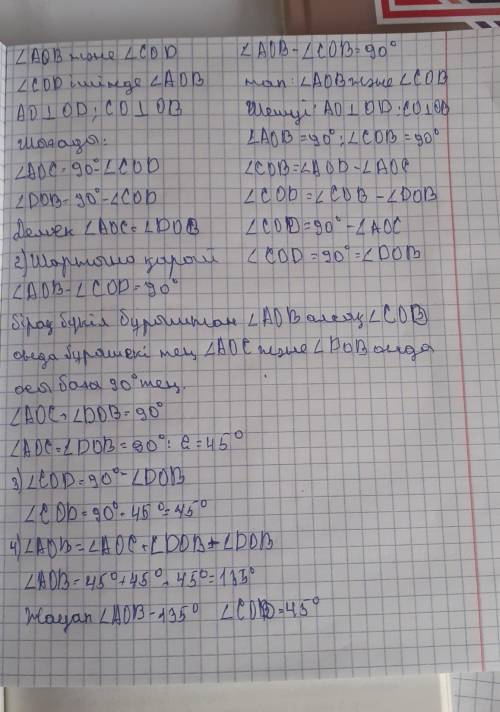 ∠AOB және ∠COD
∠COD ішінде ∠AOB
AO⊥OD; CO⊥OB
Шығады:
∠AOC = 90° - ∠COD
∠DOB = 90° - ∠COD
Демек ∠AOC = ∠DOB
2) Шартына қарай
∠AOB - ∠COD = 90°
∠AOB - ∠COB = 90°
тап: ∠AOB және ∠COB
Шешуі: AO⊥OD; CO⊥OB
∠AOB = 90°; ∠COB = 90°
∠COB = ∠AOD - ∠AOC
∠COD = ∠COB - ∠DOB
∠COD = 90° - ∠AOC
∠COD = 90° = ∠DOB
бірақ бүкіл бұрыштан ∠AOB алсақ ∠COB
онда бұрыш екі тең ∠AOC және ∠DOB онда
90° тең.
∠AOC + ∠DOB = 90°
∠AOC = ∠DOB = 90° : 2 = 45°
3) ∠COD = 90° - ∠DOB
∠COD = 90° - 45° = 45°
4) ∠AOB = ∠AOC + ∠DOB + ∠DOB
∠AOB = 45° + 45° + 45° = 135°
Жауап ∠AOB - 135° ∠COD = 45°